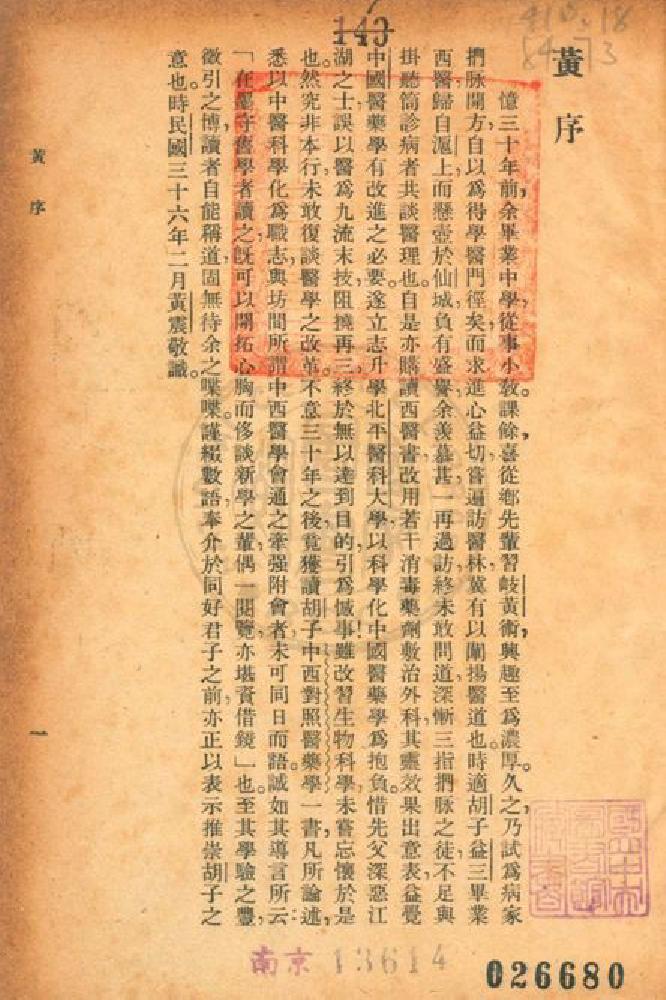 143
410.18
8473
黃序
憶三十年前，余畢業中學，從事小敎。課餘，喜從鄉先輩習岐黃術，興趣至爲濃厚。久之，乃試爲病家
捫脉開方，自以爲得學醫門徑矣，而求進心益切，嘗遍訪醫林，冀有以闡揚醫道也。時適胡子益三畢業
西醫，歸自滬上，而懸壺於仙城，負有盛譽，余羨慕甚，一再過訪，終未敢問道，深慚三指捫脉之徒，不足與
掛聽筒診病者共談醫理也。自是亦購讀西醫書，改用若干消毒藥劑敷治外科，其靈效果出意表，益覺
中國醫藥學有改進之必要。遂立志升學北平醫科大學，以科學化中國醫藥學爲抱負。惜先父深惡江
湖之士，誤以醫爲九流末技，阻撓再三，終於無以達到目的，引爲憾事！雖改習生物科學，未嘗忘懷於是
也。然究非本行，未敢復談醫學之改革。不意三十年之後，竟獲讀胡子中西對照醫藥學一書，凡所論述，
悉以中醫科學化爲職志，與坊間所謂中西醫學會通之牽强附會者，未可同日而語。誠如其導言所云：
「在墨守舊學者讀之，旣可以開拓心胸，而侈談新學之輩，偶一閱覽，亦堪資借鏡」也。至其學驗之豐，
徵引之博，讀者自能稱道，固無待余之喋喋。謹綴數語，奉介於同好君子之前，亦正以表示推崇胡子之
意也。時民國三十六年二月黃震敬識。
黃序
一
南京 13614
026680